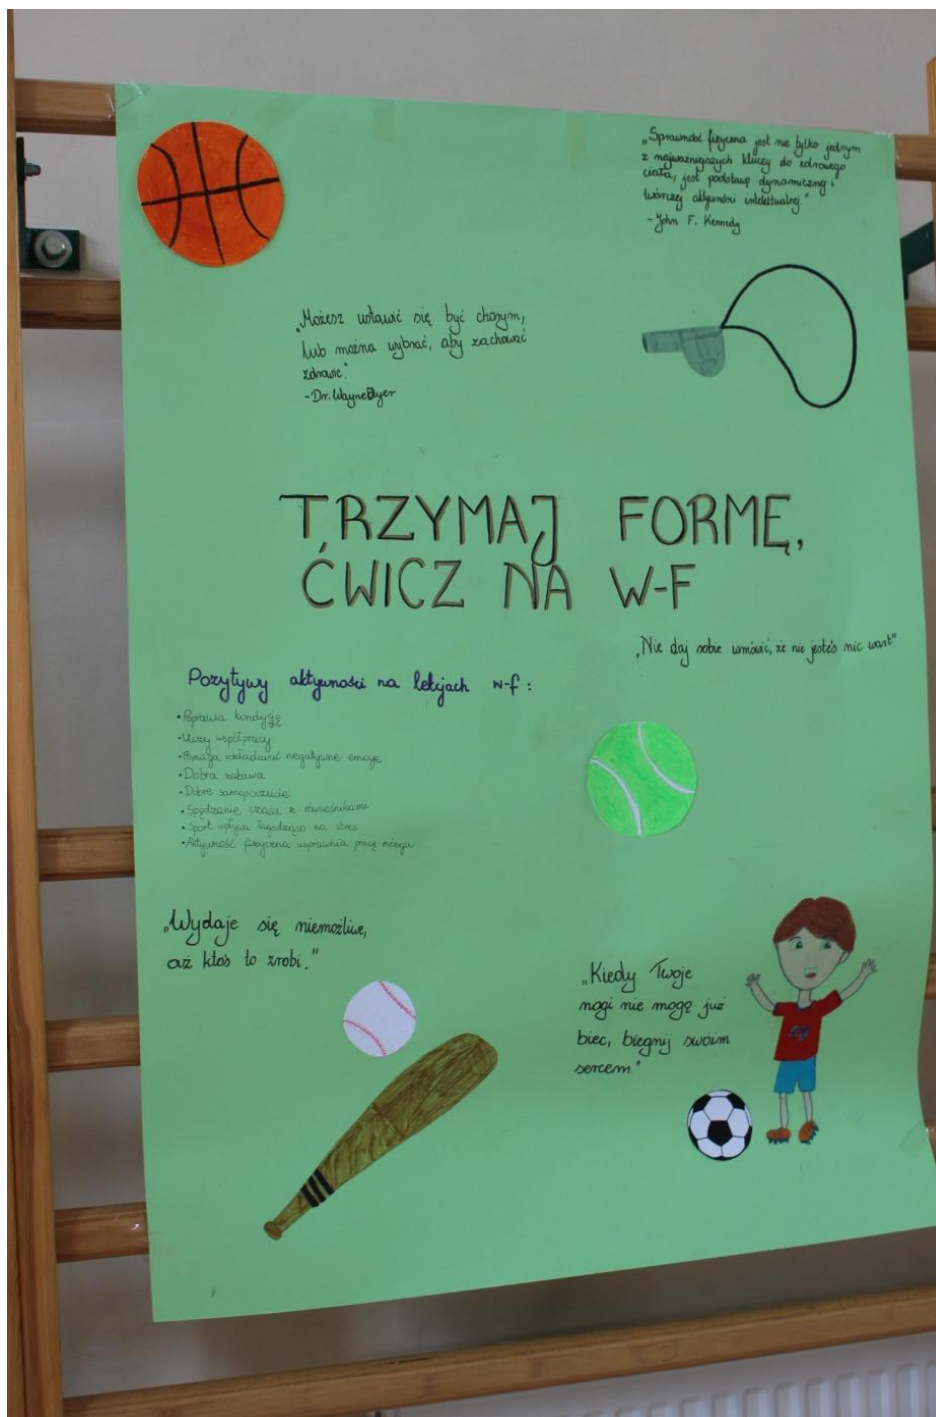 „Sprawność fizyczna jest nie tylko jednym
z najważniejszych kluczy do zdrowego
ciała, jest podstawą dynamicznej i
twórczej aktywności intelektualnej."
- John F. Kennedy
„Możesz ustawić się być chorym,
lub można wybrać, aby zachować
zdrowie."
- Dr. Wayne Dyer
TRZYMAJ FORMĘ,
ĆWICZ NA W-F
„Nie daj sobie wmówić, że nie jesteś nic wart"
Pozytywy aktywności na lekcjach w-f:
• Poprawia kondycję
• Uczy współpracy
• Pomaga rozładować negatywne emocje
• Dobra zabawa
• Dobre samopoczucie
• Spędzanie czasu z rówieśnikami
• Sport wpływa łagodząco na stres
• Aktywność fizyczna usprawnia pracę mózgu
„Wydaje się niemożliwe,
aż ktoś to zrobi."
„Kiedy Twoje
nogi nie mogę już
biec, biegnij swoim
sercem."